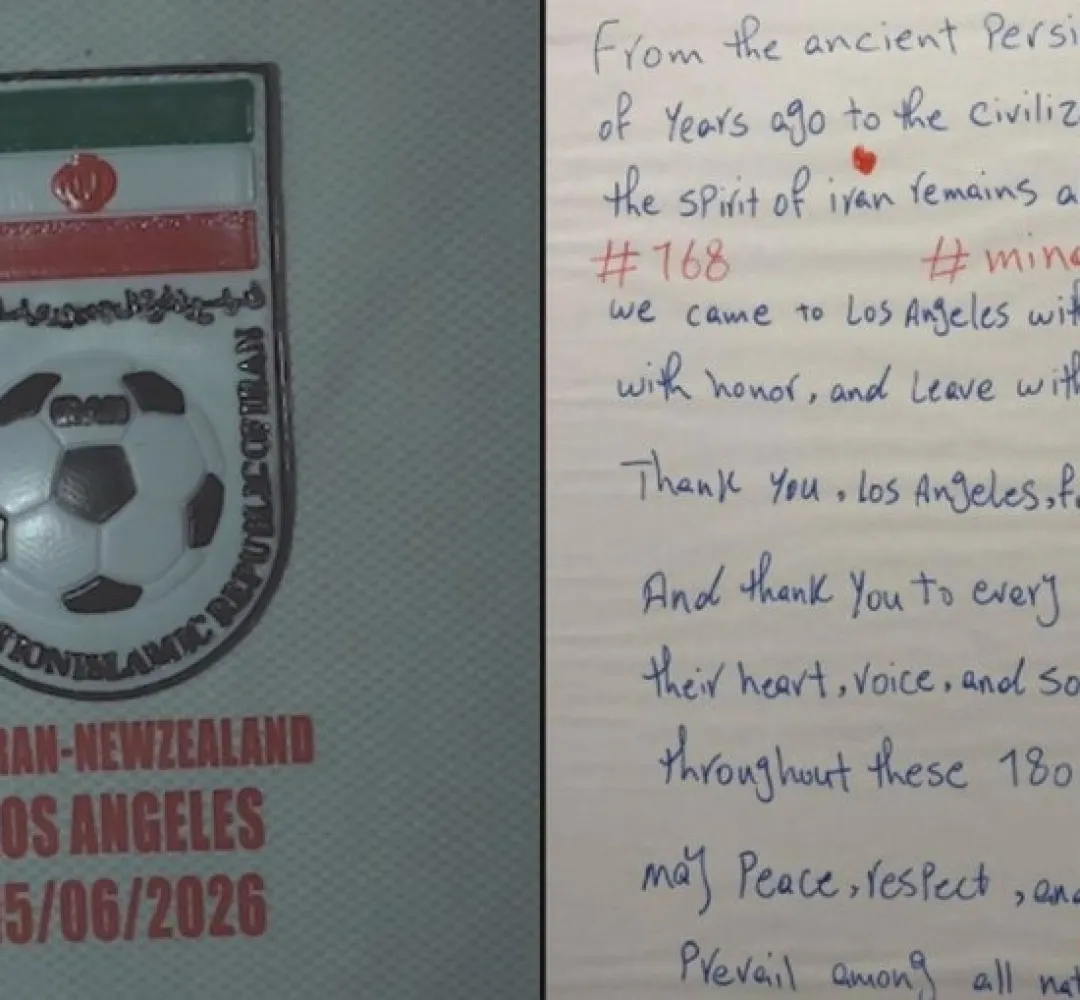 ISLAMIC REPUBLIC OF IRAN
IRAN
RAN-NEWZEALAND
OS ANGELES
5/06/2026
From the ancient Persi
of Years ago to the civiliz
the spirit of iran remains a
#168 #mina
we came to Los Angeles wit
with honor, and Leave with
Thank you, Los Angeles, f
And thank you to every
their heart, voice, and so
throughout these 180
may Peace, respect, and
Prevail among all nat